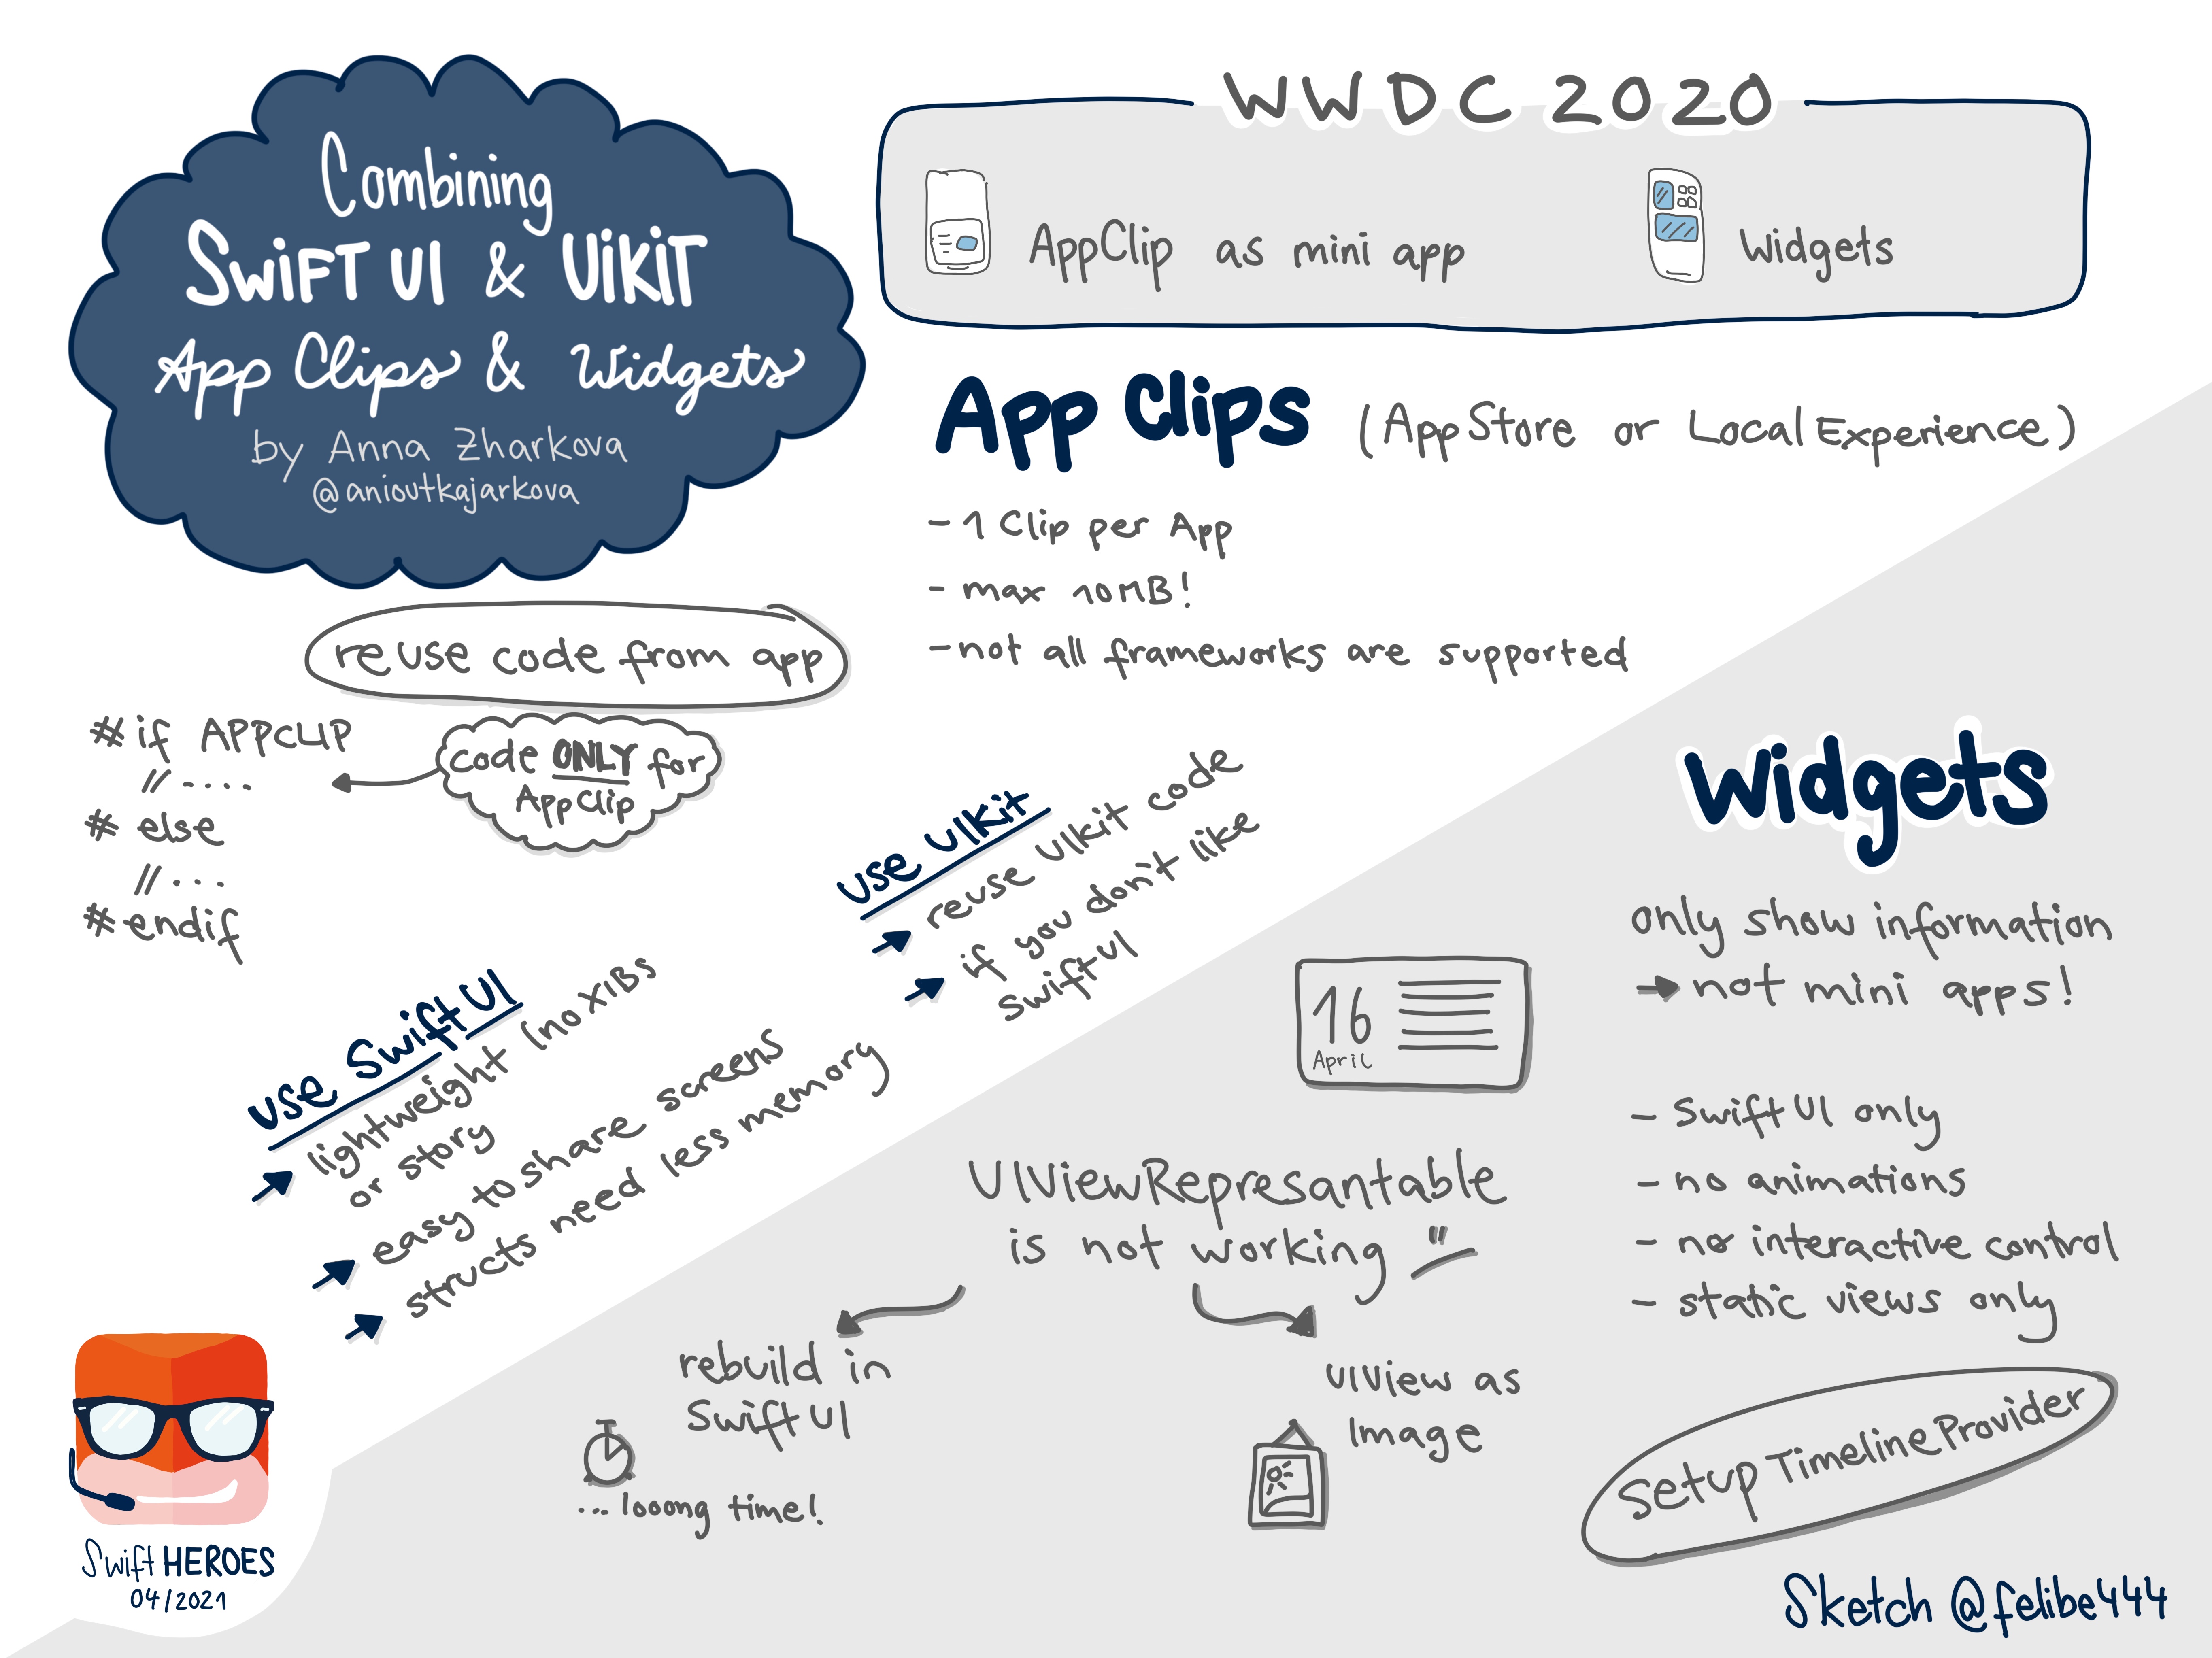 Combining
SwiFT UI & UiKiT
App Clips & Widgets
by Anna Zharkova
@anioutkajarkova
WWDC 2020
AppClip as mini app
Widgets
App Clips (AppStore or Local Experience)
- 1 Clip per App
- max 10MB!
- not all frameworks are supported
reuse code from app
# if APPCLIP
// ....
# else
// ...
# endif
code ONLY for
AppClip
use UIkit
reuse UIkit code
if you don't like
SwiftUI
use SwiftUI
lightweight (no XIBs
or story
easy to share screens
structs need less memory
Widgets
only show information
not mini apps!
16
April
- SwiftUI only
- no animations
- no interactive control
- static views only
UIViewRepresantable
is not working
rebuild in
SwiftUI
... looong time!
UIView as
Image
setup TimelineProvider
Swift HEROES
04/2021
Sketch @felibe444